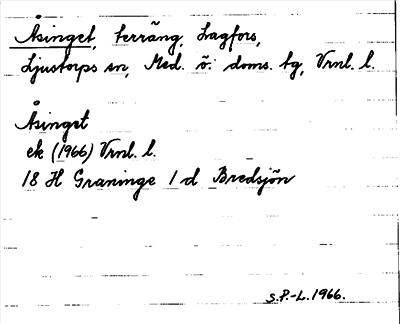 Åsinget, terräng, Lagfors,
Ljustorps sn, Med. ö. doms. tg, Vrnl. l.
Åsinget
ek (1966) Vrnl. l.
18 H Graninge 1 d Bredsjön
S.P.-L. 1966.